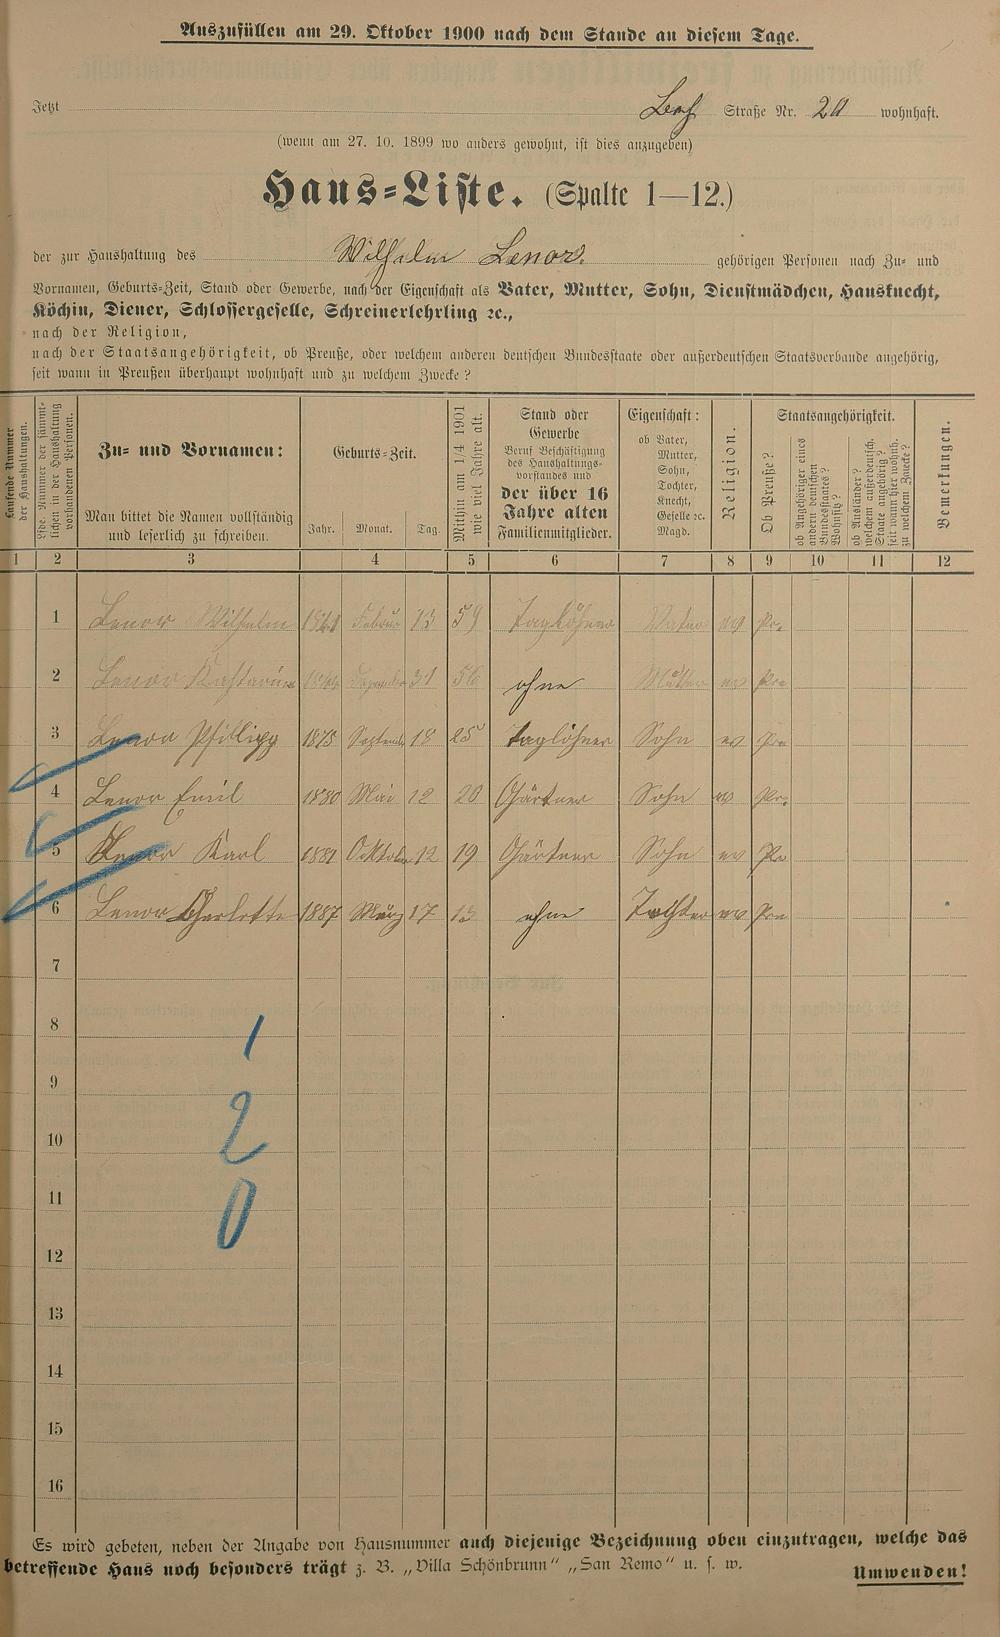 Auszufüllen am 29. Oktober 1900 nach dem Stande an diesem Tage.
Jetzt Straße Nr. 20 wohnhaft.
(wenn am 27. 10. 1899 wo anders gewohnt, ist dies anzugeben)
Haus-Liste. (Spalte 1—12.)
der zur Haushaltung des Wilhelm Lenor. gehörigen Personen nach Zu- und
Vornamen, Geburts-Zeit, Stand oder Gewerbe, nach der Eigenschaft als Vater, Mutter, Sohn, Dienstmädchen, Hausknecht,
Köchin, Diener, Schlossergeselle, Schreinerlehrling ꝛc.,
nach der Religion,
nach der Staatsangehörigkeit, ob Preuße, oder welchem anderen deutschen Bundesstaate oder außerdeutschen Staatsverbande angehörig,
seit wann in Preußen überhaupt wohnhaft und zu welchem Zwecke?
Laufende Nummer der Haushaltungen.
Lfde. Nummer der sämmtlichen in der Haushaltung vorhandenen Personen.
Zu- und Vornamen:
Man bittet die Namen vollständig
und leserlich zu schreiben.
Geburts-Zeit.
Jahr. Monat. Tag.
Mithin am 1/4 1901 wie viel Jahre alt.
Stand oder
Gewerbe
Beruf Beschäftigung
des Haushaltungs-
vorstandes und
der über 16
Jahre alten
Familienmitglieder.
Eigenschaft:
ob Vater,
Mutter,
Sohn,
Tochter,
Knecht,
Geselle ꝛc.
Magd.
Religion.
Staatsangehörigkeit.
Ob Preuße?
ob Angehöriger eines andern deutschen Bundesstaates? Wohnitz?
ob Ausländer? welchem außerdeutsch. Staate angehörig? seit wann hier wohnh. zu welchem Zwecke?
Bemerkungen.
1 2 3 4 5 6 7 8 9 10 11 12
1 Lenor Wilhelm Februar 13 59 Taglöhner Vater ev Pr.
2 Lenor 31 56 ohne Mutter ev Pre
3 Lenor Phillipp 1875 Septemb 18 25 Taglöhner Sohn ev Pre
4 Lenor Emil 1880 Mai 12 20 Gärtner Sohn ev Pr.
5 Lenor Karl 1881 Oktober 12 19 Gärtner Sohn ev Pr
6 Lenor Charlotte 1887 März 17 13 ohne Tochter ev Pre
7
8
9
10
11
12
13
14
15
16
1
2
0
Es wird gebeten, neben der Angabe von Hausnummer auch diejenige Bezeichnung oben einzutragen, welche das
betreffende Haus noch besonders trägt z. B. „Villa Schönbrunn" „San Remo" u. s. w.
Umwenden!